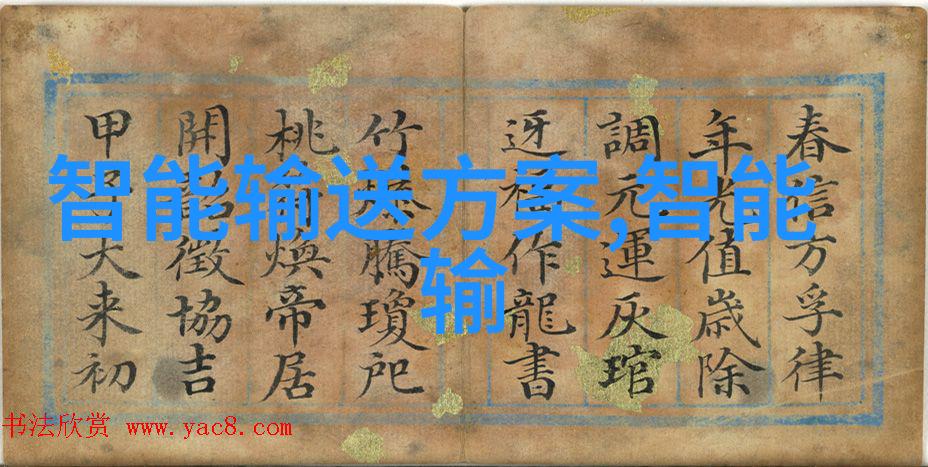 春信方孚律
年光值歲除
調元運灰琯
迓福作龍書
竹爆騰瓊
桃符煥帝居
開韶徵協吉
甲子大来初
智能输送方案,智能
输
书法欣赏 www.yac8.com